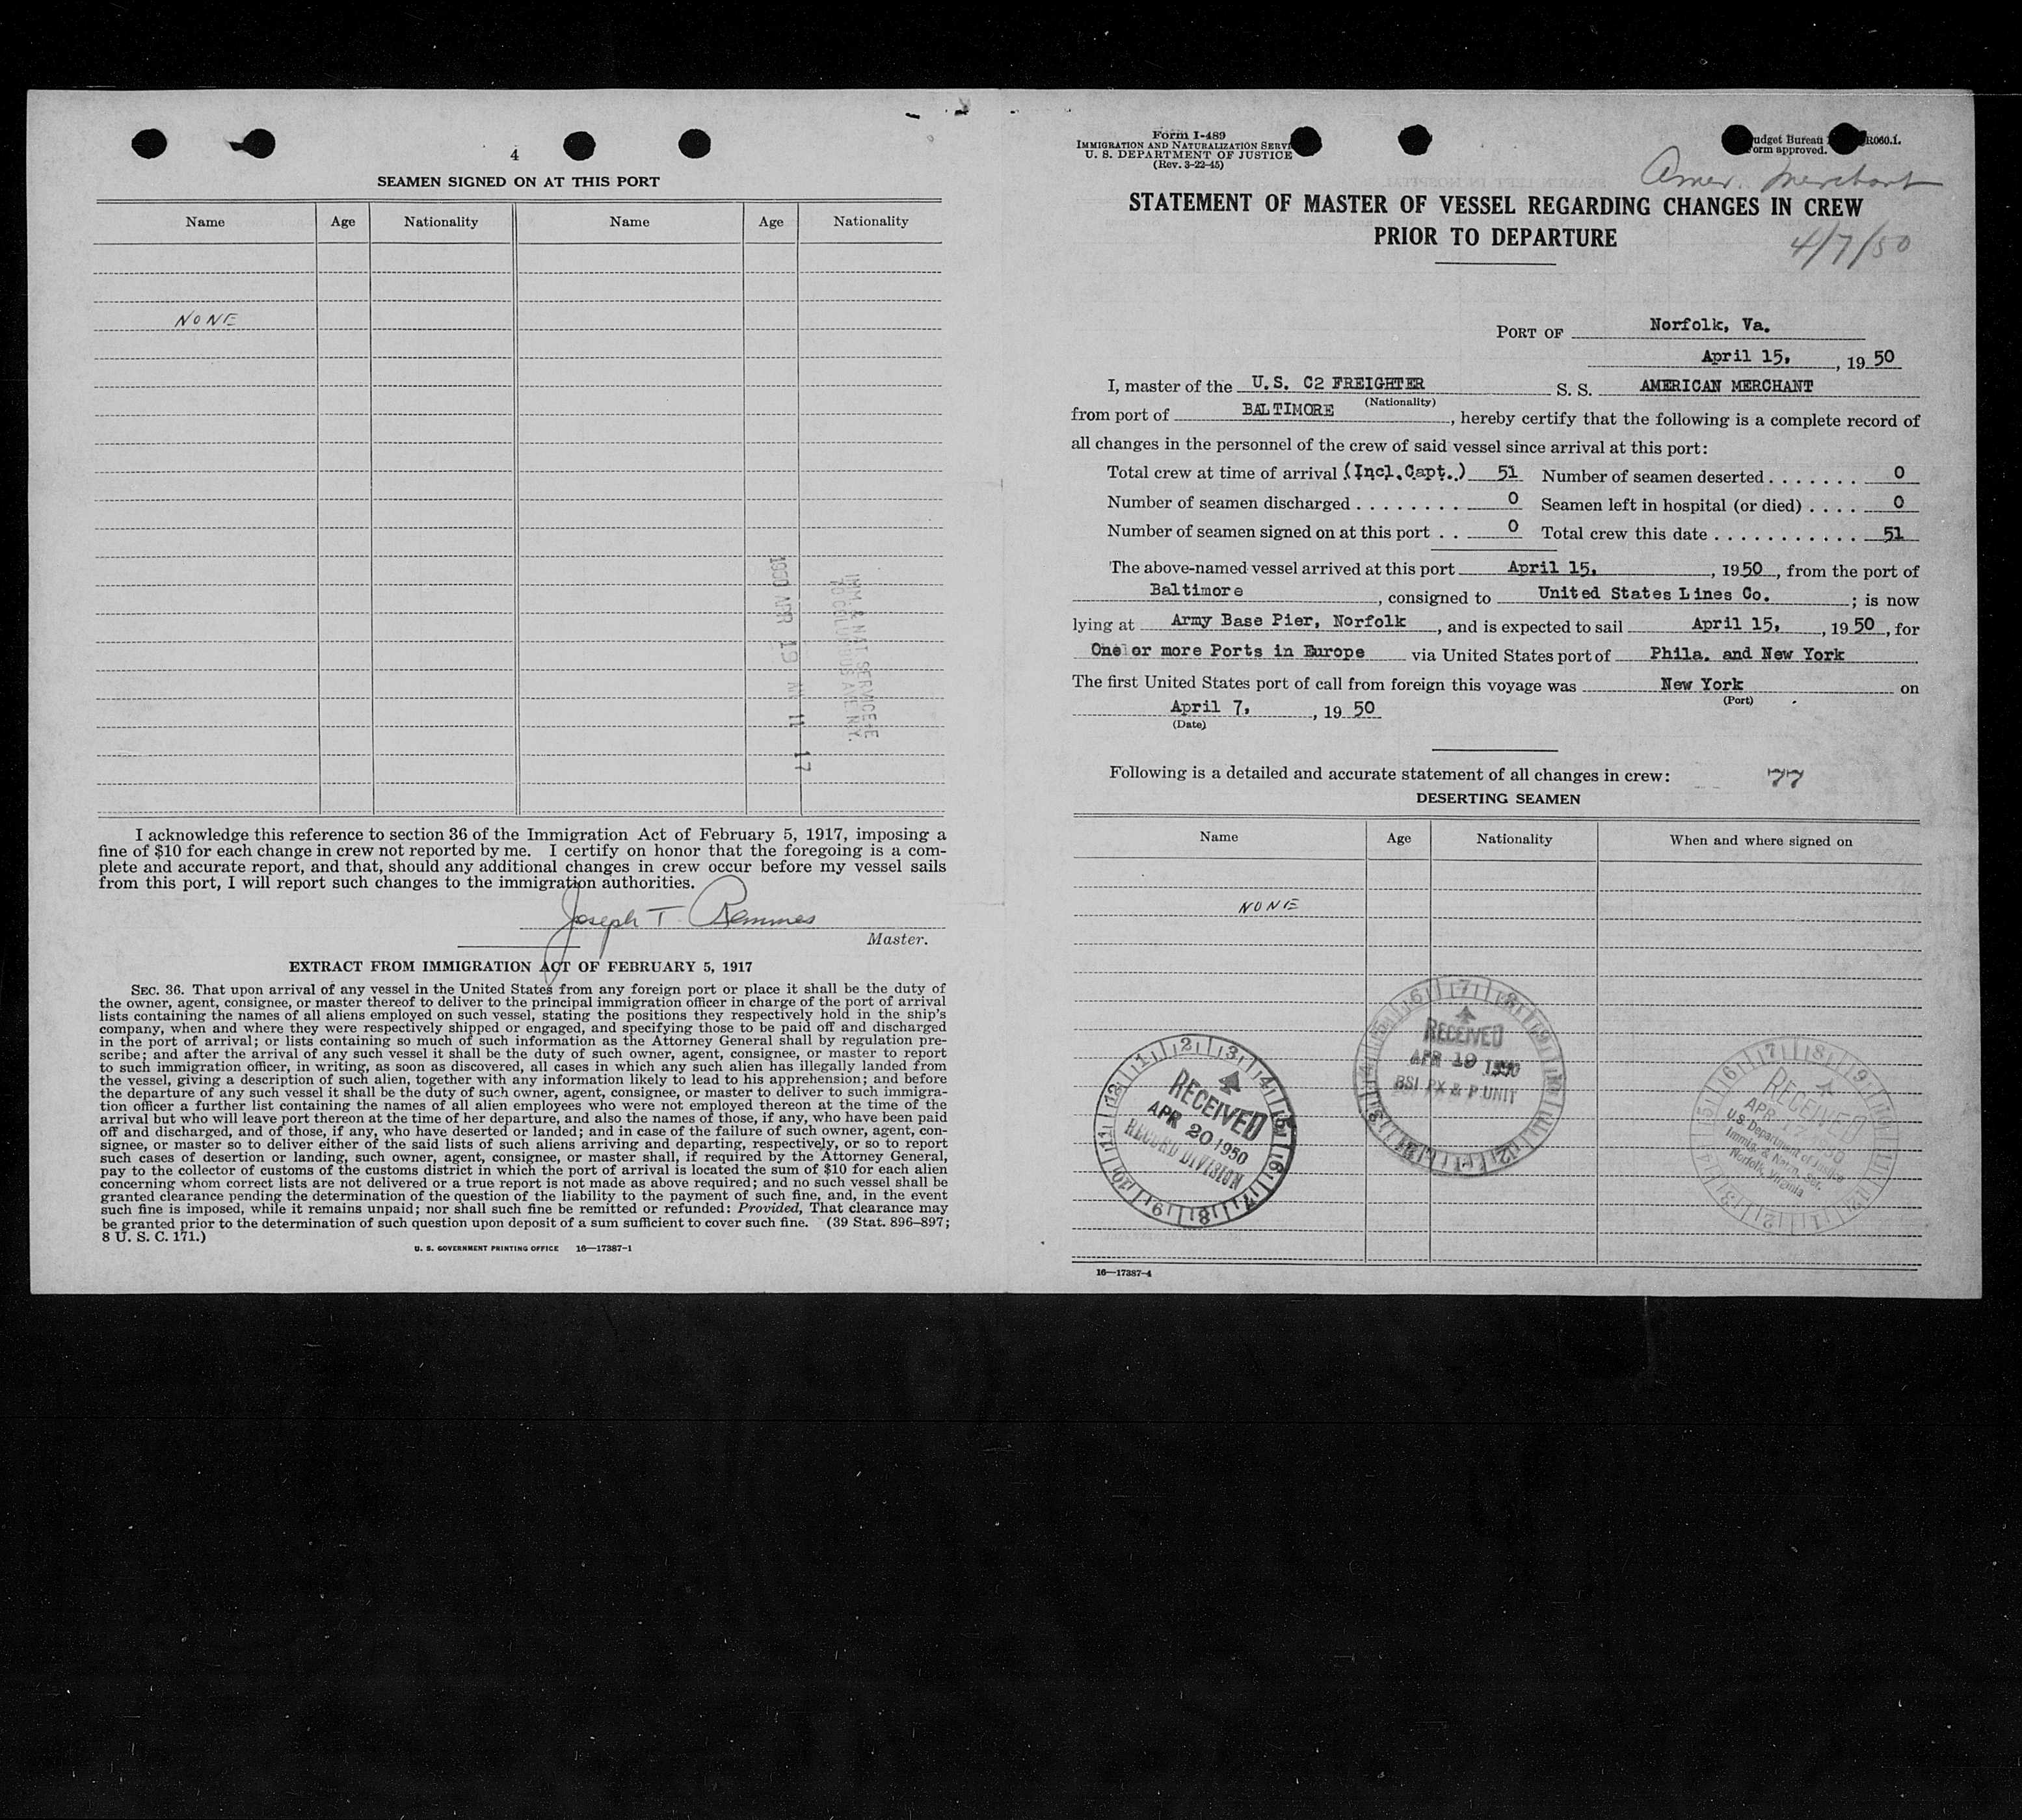 4
SEAMEN SIGNED ON AT THIS PORT
Name Age Nationality Name Age Nationality
NONE
IMM & NAT SERVICE
70 COLUMBUS AVE N.Y.
1950 APR 19 AM 11 17
I acknowledge this reference to section 36 of the Immigration Act of February 5, 1917, imposing a
fine of $10 for each change in crew not reported by me. I certify on honor that the foregoing is a com-
plete and accurate report, and that, should any additional changes in crew occur before my vessel sails
from this port, I will report such changes to the immigration authorities.
Joseph T.
Master.
EXTRACT FROM IMMIGRATION ACT OF FEBRUARY 5, 1917
SEC. 36. That upon arrival of any vessel in the United States from any foreign port or place it shall be the duty of
the owner, agent, consignee, or master thereof to deliver to the principal immigration officer in charge of the port of arrival
lists containing the names of all aliens employed on such vessel, stating the positions they respectively hold in the ship's
company, when and where they were respectively shipped or engaged, and specifying those to be paid off and discharged
in the port of arrival; or lists containing so much of such information as the Attorney General shall by regulation pre-
scribe; and after the arrival of any such vessel it shall be the duty of such owner, agent, consignee, or master to report
to such immigration officer, in writing, as soon as discovered, all cases in which any such alien has illegally landed from
the vessel, giving a description of such alien, together with any information likely to lead to his apprehension; and before
the departure of any such vessel it shall be the duty of such owner, agent, consignee, or master to deliver to such immigra-
tion officer a further list containing the names of all alien employees who were not employed thereon at the time of the
arrival but who will leave port thereon at the time of her departure, and also the names of those, if any, who have been paid
off and discharged, and of those, if any, who have deserted or landed; and in case of the failure of such owner, agent, con-
signee, or master so to deliver either of the said lists of such aliens arriving and departing, respectively, or so to report
such cases of desertion or landing, such owner, agent, consignee, or master shall, if required by the Attorney General,
pay to the collector of customs of the customs district in which the port of arrival is located the sum of $10 for each alien
concerning whom correct lists are not delivered or a true report is not made as above required; and no such vessel shall be
granted clearance pending the determination of the question of the liability to the payment of such fine, and, in the event
such fine is imposed, while it remains unpaid; nor shall such fine be remitted or refunded: Provided, That clearance may
be granted prior to the determination of such question upon deposit of a sum sufficient to cover such fine. (39 Stat. 896–897;
8 U. S. C. 171.)
U. S. GOVERNMENT PRINTING OFFICE 16—17387-1
Form I-489
IMMIGRATION AND NATURALIZATION SERVI
U. S. DEPARTMENT OF JUSTICE
(Rev. 3-22-45)
udget Bureau R060.1.
orm approved.
Amer. Merchant
STATEMENT OF MASTER OF VESSEL REGARDING CHANGES IN CREW
PRIOR TO DEPARTURE
4/7/50
PORT OF Norfolk, Va.
April 15, , 19 50
I, master of the U.S. C2 FREIGHTER S. S. AMERICAN MERCHANT
(Nationality)
from port of BALTIMORE , hereby certify that the following is a complete record of
all changes in the personnel of the crew of said vessel since arrival at this port:
Total crew at time of arrival (Incl.Capt.) 51 Number of seamen deserted . . . . . . . 0
Number of seamen discharged . . . . . . . . 0 Seamen left in hospital (or died) . . . . 0
Number of seamen signed on at this port . . 0 Total crew this date . . . . . . . . . . . . 51
The above-named vessel arrived at this port April 15, , 1950 , from the port of
Baltimore , consigned to United States Lines Co. ; is now
lying at Army Base Pier, Norfolk , and is expected to sail April 15, , 19 50 , for
One or more Ports in Europe via United States port of Phila. and New York
The first United States port of call from foreign this voyage was New York on
(Port)
April 7, , 19 50
(Date)
Following is a detailed and accurate statement of all changes in crew: 77
DESERTING SEAMEN
Name Age Nationality When and where signed on
NONE
RECEIVED
APR 20 1950
RECORD DIVISION
RECEIVED
APR 19 1950
BSI PX & P UNIT
RECEIVED
APR 17 1950
U.S. Department of Justice
Immig. & Natzn. Ser.
Norfolk, Virginia
16—17387-4